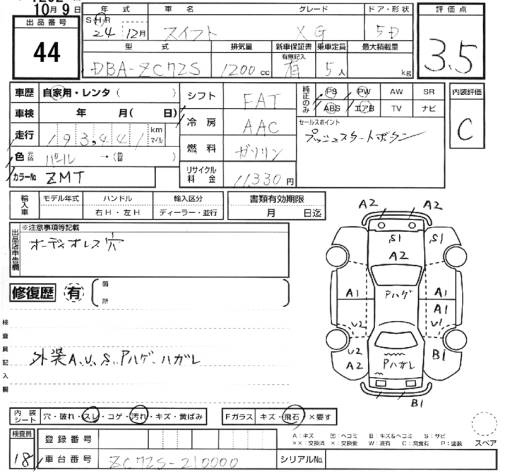 10月9日
出品番号
44
年式 車名 グレード ドア・形状
S H R
24 12月 スイフト XG 5D
型式 排気量 新車保証書 乗車定員 最大積載量
有無記入
DBA-ZC72S 1200cc 有 5人 kg
評価点
3.5
車歴 自家用・レンタ( )
車検 年 月( 日)
走行 193,441 km マイル
色 パール → ( )
カラーNo ZMT
シフト FAT
冷房 AAC
燃料 ガソリン
リサイクル料金 11330円
純正のみ
PS PW AW SR
ABS エアB TV ナビ
セールスポイント
プッシュスタートボタン
内装評価
C
輸入車
モデル年式 ハンドル 輸入区分
右H・左H ディーラー・並行
書類有効期限
月 日迄
出品店申告欄
※注意事項等記載
オーディオレス穴
修復歴 有 ( 箇所 )
検査員記入欄
外装A,U,S,Pハゲ・ハガレ
A2 A2
S1 S1
A2
A1 Pハゲ A1
V1 U1
U2 U2
A2 Pハガレ A2
B1
内装シート
穴・破れ・スレ・コゲ・汚れ・キズ・黄ばみ
Fガラス キズ・飛石・×要す
A:キズ U:ヘコミ B:キズ&ヘコミ S:サビ
スペア
検査員
18
登録番号
車台番号 ZC72S-210000
シリアルNo.